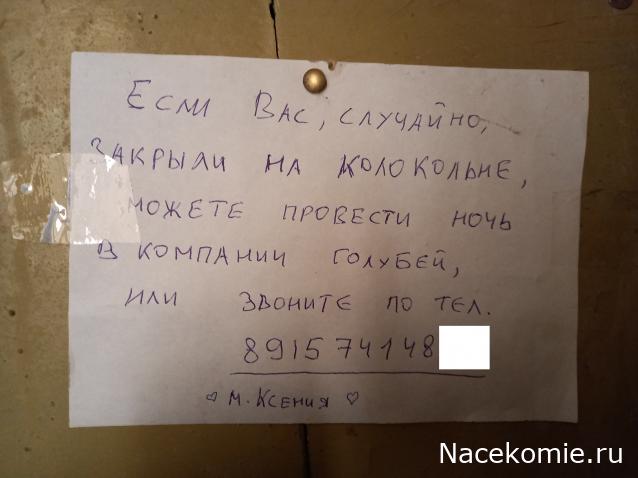 Если Вас, случайно,
закрыли на колокольне,
можете провести ночь
в компании голубей,
или звоните по тел.
89157414 8
♡ м. Ксения ♡
Nacekomie.ru